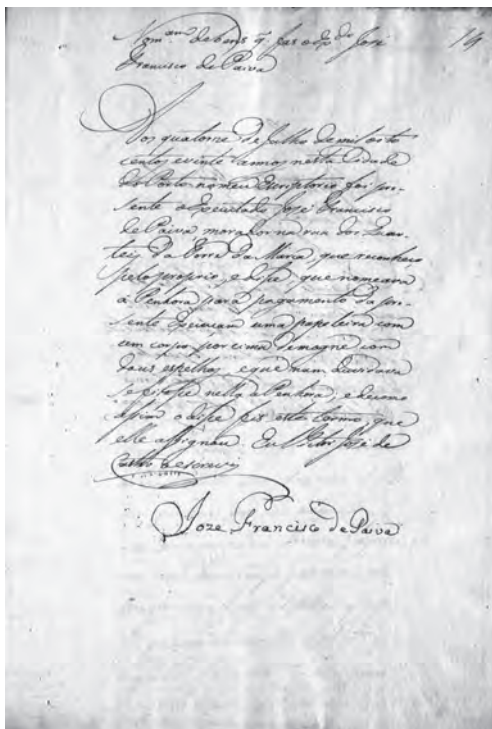 Nom.am de bens q. fas o Ex.do José 14
Francisco de Paiva
Aos quatorse de Julho de mil oito
centos e vinte annos nesta Cidade
do Porto no meu Escriptorio foi pre-
sente o Executado José Francisco
de Paiva morador na rua dos Quar-
teis da Torre da Marca, que reconheço
pelo proprio, e disse, que nomeava
á Penhora para pagamento da pre-
sente Execucam uma papeleira com
um corpo por cima de mogne com
dous espelhos, e que nam duvidava
se fisesse nella a Penhora; e de como
assim o disse fis este termo, que
elle assignou. Eu José de
Castro o escrevi
Joze Francisco de Paiva